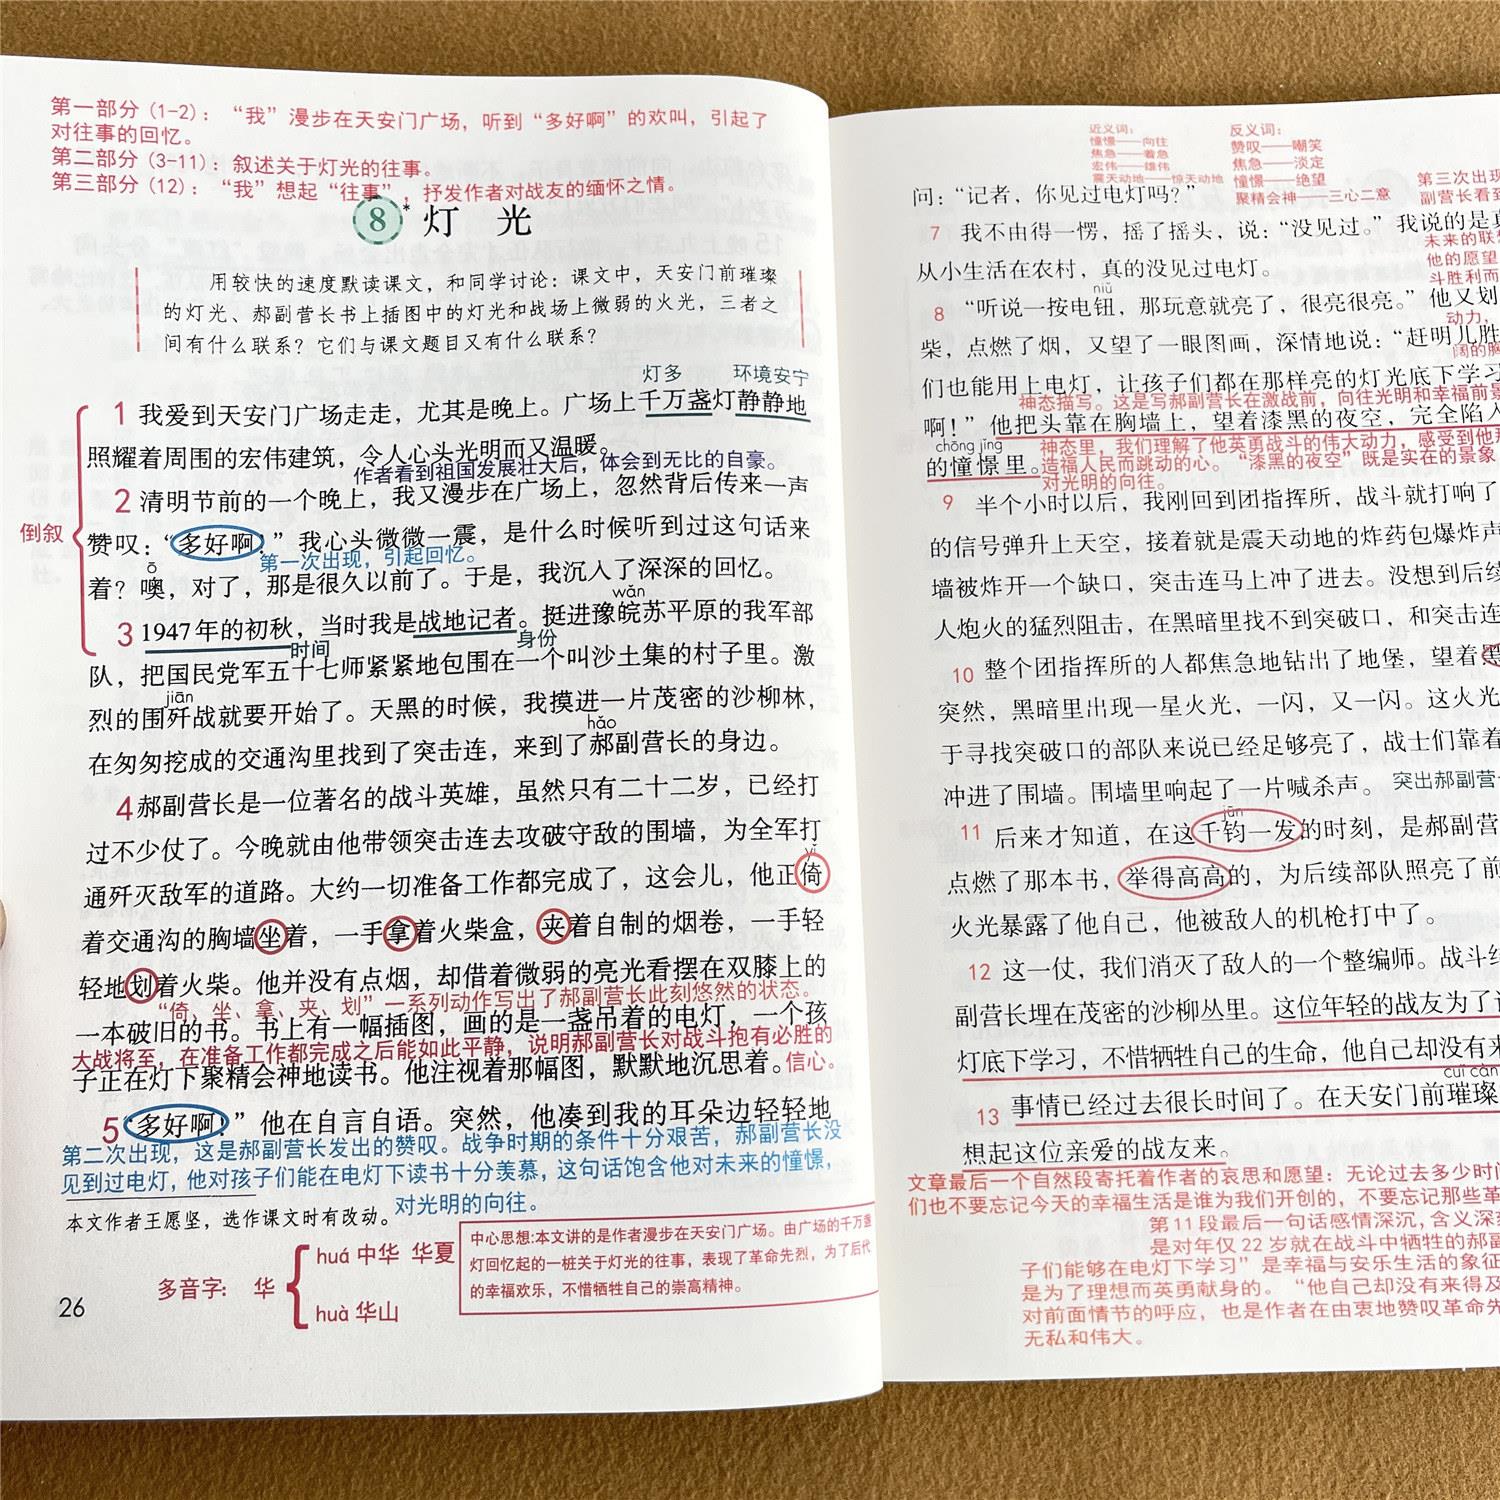 第一部分（1-2）：“我”漫步在天安门广场，听到“多好啊”的欢叫，引起了
对往事的回忆。
第二部分（3-11）：叙述关于灯光的往事。
第三部分（12）：“我”想起“往事”，抒发作者对战友的缅怀之情。
8* 灯 光
用较快的速度默读课文，和同学讨论：课文中，天安门前璀璨
的灯光、郝副营长书上插图中的灯光和战场上微弱的火光，三者之
间有什么联系？它们与课文题目又有什么联系？
灯多 环境安宁
1 我爱到天安门广场走走，尤其是晚上。广场上千万盏灯静静地
照耀着周围的宏伟建筑，令人心头光明而又温暖。
作者看到祖国发展壮大后，体会到无比的自豪。
2 清明节前的一个晚上，我又漫步在广场上，忽然背后传来一声
倒叙
赞叹：“多好啊！”我心头微微一震，是什么时候听到过这句话来
第一次出现，引起回忆。
ō
着？噢，对了，那是很久以前了。于是，我沉入了深深的回忆。
wǎn
3 1947年的初秋，当时我是战地记者。挺进豫皖苏平原的我军部
时间 身份
队，把国民党军五十七师紧紧地包围在一个叫沙土集的村子里。激
jiān
烈的围歼战就要开始了。天黑的时候，我摸进一片茂密的沙柳林，
hǎo
在匆匆挖成的交通沟里找到了突击连，来到了郝副营长的身边。
4 郝副营长是一位著名的战斗英雄，虽然只有二十二岁，已经打
过不少仗了。今晚就由他带领突击连去攻破守敌的围墙，为全军打
yǐ
通歼灭敌军的道路。大约一切准备工作都完成了，这会儿，他正倚
着交通沟的胸墙坐着，一手拿着火柴盒，夹着自制的烟卷，一手轻
轻地划着火柴。他并没有点烟，却借着微弱的亮光看摆在双膝上的
“倚、坐、拿、夹、划”一系列动作写出了郝副营长此刻悠然的状态。
一本破旧的书。书上有一幅插图，画的是一盏吊着的电灯，一个孩
大战将至，在准备工作都完成之后能如此平静，说明郝副营长对战斗抱有必胜的
子正在灯下聚精会神地读书。他注视着那幅图，默默地沉思着。信心。
5 “多好啊！”他在自言自语。突然，他凑到我的耳朵边轻轻地
第二次出现，这是郝副营长发出的赞叹。战争时期的条件十分艰苦，郝副营长没
见到过电灯，他对孩子们能在电灯下读书十分羡慕，这句话饱含他对未来的憧憬，
对光明的向往。
本文作者王愿坚，选作课文时有改动。
多音字： 华
huá 中华 华夏
huà 华山
中心思想：本文讲的是作者漫步在天安门广场。由广场的千万盏
灯回忆起的一桩关于灯光的往事，表现了革命先烈，为了后代
的幸福欢乐，不惜牺牲自己的崇高精神。
26
近义词：
憧憬——向往
焦急——着急
宏伟——雄伟
震天动地——惊天动地
反义词：
赞叹——嘲笑
焦急——淡定
憧憬——绝望
聚精会神——三心二意
第三次出现
副营长看到
问：“记者，你见过电灯吗？”
7 我不由得一愣，摇了摇头，说：“没见过。”我说的是真
未来的联
他的愿望
斗胜利而
从小生活在农村，真的没见过电灯。
niǔ
8 “听说一按电钮，那玩意就亮了，很亮很亮。”他又划
动力，
柴，点燃了烟，又望了一眼图画，深情地说：“赶明儿胜
阔的胸
们也能用上电灯，让孩子们都在那样亮的灯光底下学习
神态描写。这是写郝副营长在激战前，向往光明和幸福前景
啊！”他把头靠在胸墙上，望着漆黑的夜空，完全陷入
chōng jǐng
神态里，我们理解了他英勇战斗的伟大动力，感受到他那
的憧憬里。造福人民而跳动的心。“漆黑的夜空”既是实在的景象
对光明的向往。
9 半个小时以后，我刚回到团指挥所，战斗就打响了
的信号弹升上天空，接着就是震天动地的炸药包爆炸声
墙被炸开一个缺口，突击连马上冲了进去。没想到后续
人炮火的猛烈阻击，在黑暗里找不到突破口，和突击连
10 整个团指挥所的人都焦急地钻出了地堡，望着黑
突然，黑暗里出现一星火光，一闪，又一闪。这火光
于寻找突破口的部队来说已经足够亮了，战士们靠着
冲进了围墙。围墙里响起了一片喊杀声。 突出郝副营
jūn
11 后来才知道，在这千钧一发的时刻，是郝副营
点燃了那本书，举得高高的，为后续部队照亮了前
火光暴露了他自己，他被敌人的机枪打中了。
12 这一仗，我们消灭了敌人的一个整编师。战斗结
副营长埋在茂密的沙柳丛里。这位年轻的战友为了让
灯底下学习，不惜牺牲自己的生命，他自己却没有来
cuǐ càn
13 事情已经过去很长时间了。在天安门前璀璨
想起这位亲爱的战友来。
文章最后一个自然段寄托着作者的哀思和愿望：无论过去多少时间
们也不要忘记今天的幸福生活是谁为我们开创的，不要忘记那些革
第11段最后一句话感情深沉，含义深刻
是对年仅22岁就在战斗中牺牲的郝副
子们能够在电灯下学习”是幸福与安乐生活的象征
是为了理想而英勇献身的。“他自己却没有来得及
对前面情节的呼应，也是作者在由衷地赞叹革命先
无私和伟大。